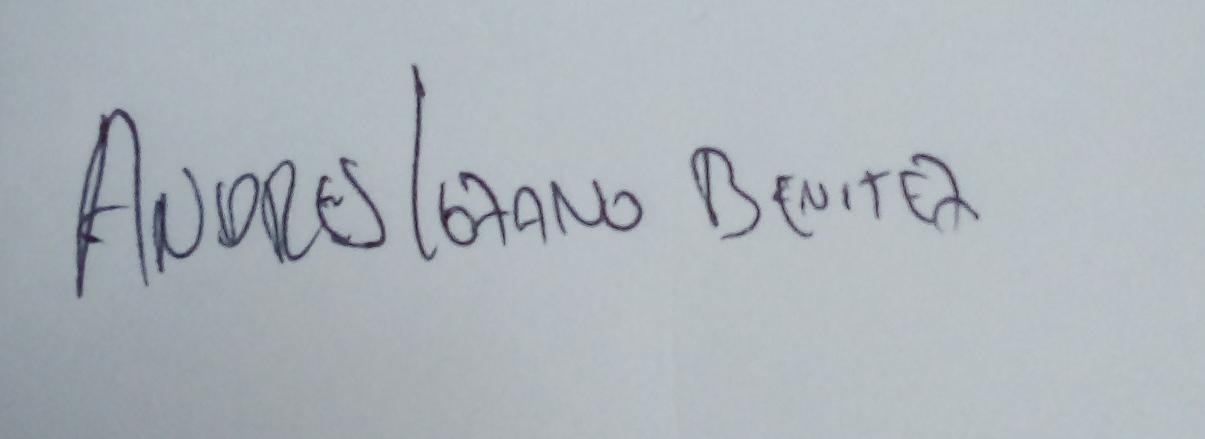 ANDRES LOZANO BENITEZ